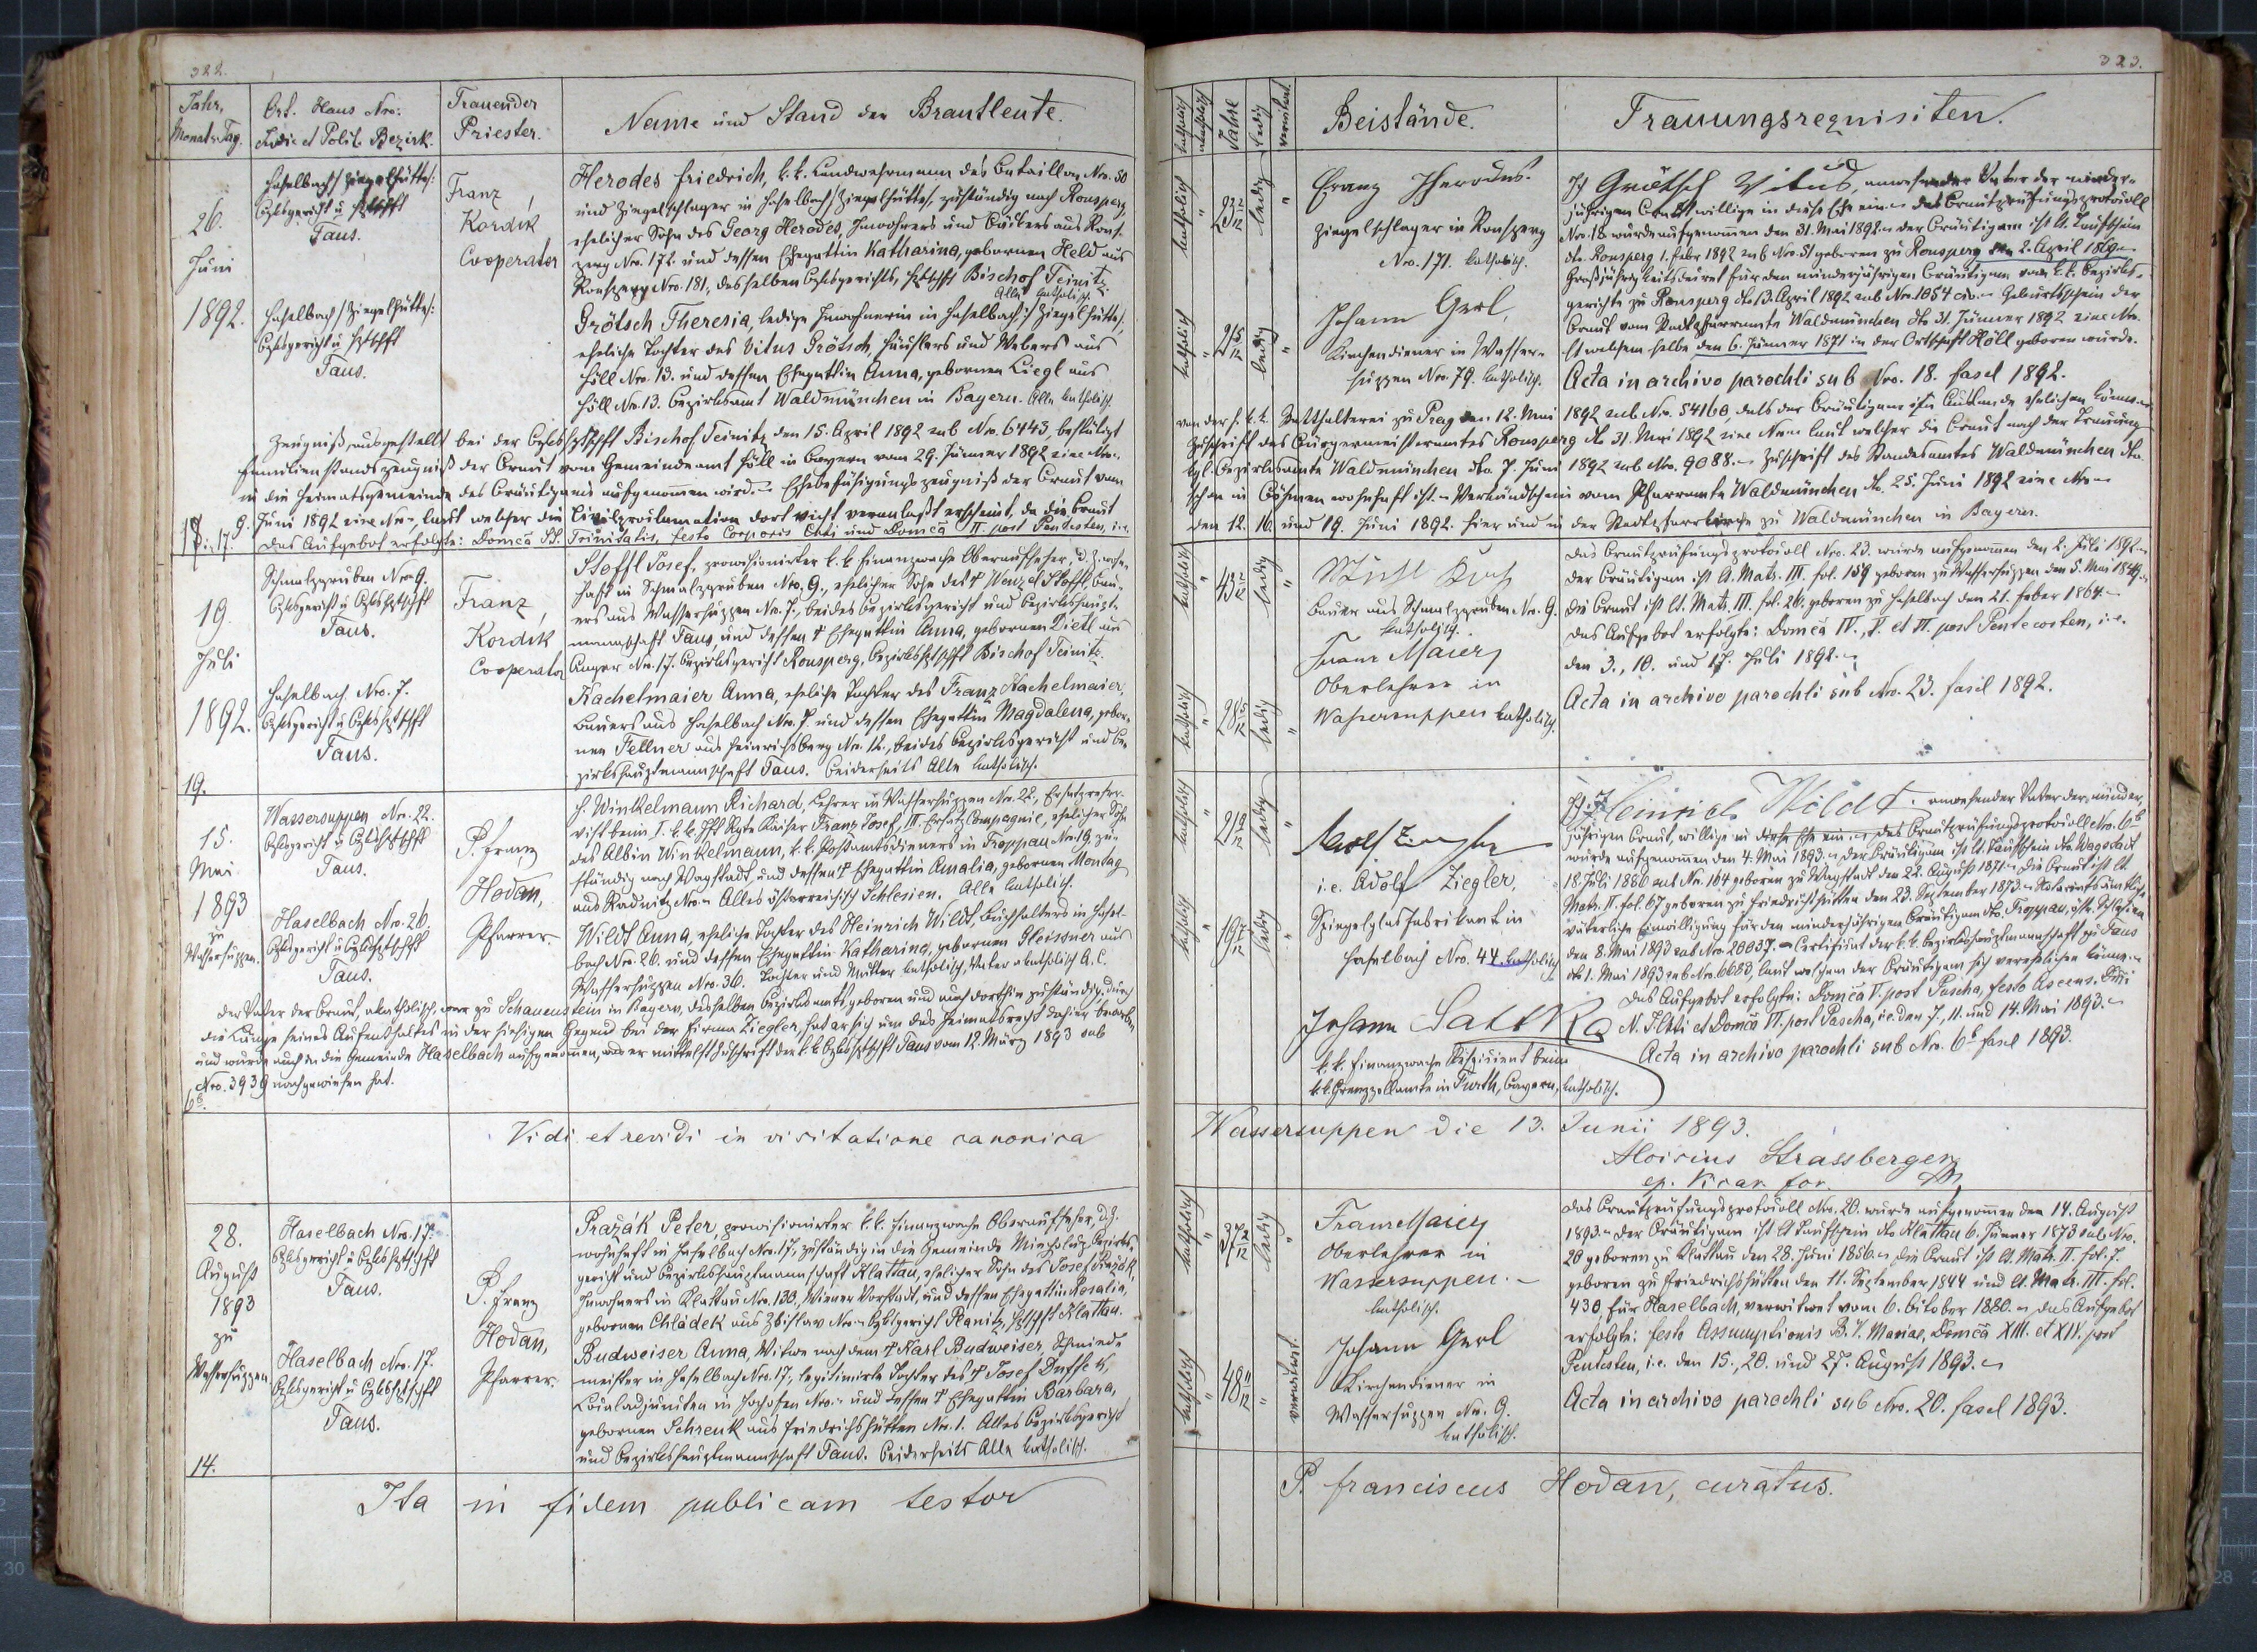 322.
Jahr, Monat u. Tag.
Ort. Haus Nro: Judic. et Polit. Bezirk.
Trauender Priester.
Name und Stand der Brautleute.
26.
Juni
1892.
Haselbach /: Ziegelhütte :/
Bzksgericht u
Taus.
Haselbach /: Ziegelhütte :/
Bzksgericht u
Taus.
Franz
Kordik
Cooperator
Herodes Friedrich, k. k. Landwehrmann des Bataillon Nro. 50
und Ziegelschlager in Haselbach /: Ziegelhütte :/, zuständig nach Ronsperg,
ehelicher Sohn des Georg Herodes, Inwohners und Bäckers aus Rons-
perg Nro. 172. und dessen Ehegattin Katharina, gebornen Held aus
Ronsperg Nro. 181, desselben Bzksgerichts, Bischof Teinitz.
Alle katholisch.
Grötsch Theresia, ledige Inwohnerin in Haselbach /: Ziegelhütte :/,
eheliche Tochter des Vitus Grötsch, Häuslers und Webers aus
Höll Nro. 13. und dessen Ehegattin Anna, gebornen Liegl aus
Höll Nro. 13. Bezirksamt Waldmünchen in Bayern. Alle katholisch.
Zeugniß ausgestellt bei der Bischof Teinitz den 15. April 1892 sub Nro. 6443, bestätigt
Familienstandszeugniß der Braut vom Gemeindeamt Höll in Bayern vom 29. Jänner 1892 sine Nro.
in die Heimatsgemeinde des Bräutigams aufgenommen wird. Ehebefähigungszeugniß der Braut vom
9. Juni 1892 sine Nro., laut welcher die Civilproclamation dort nicht veranlaßt erscheint, da die Braut
Das Aufgebot erfolgte: Domca SS. Trinitatis, festo Corporis Christi und Domca II. post Pentecosten, i.e.
19.
Juli
1892.
Schmalzgruben Nro 9.
Bzksgericht u
Taus.
Haselbach Nro. 7.
Bzksgericht u
Taus.
Franz
Kordik
Cooperator
Stoffl Josef, provisionirter k. k. Finanzwache Oberaufseher, d. Z. wohn-
haft in Schmalzgruben Nro. 9., ehelicher Sohn des † Wenzel Stoffl, Bau-
ers aus Wassersuppen Nro. 7., beides Bezirksgericht und Bezirkshaupt-
mannschaft Taus und dessen † Ehegattin Anna, gebornen Dietl aus
Anger Nro. 17. Bezirksgericht Ronsperg, Bischof Teinitz.
Kachelmaier Anna, eheliche Tochter des Franz Kachelmaier,
Bauers aus Haselbach Nro. 7. und dessen Ehegattin Magdalena, gebor-
nen Fellner aus Heinrichsberg Nro. 12., beides Bezirksgericht und Be-
zirkshauptmannschaft Taus. Beiderseits Alle katholisch.
19.
15.
Mai
1893
zu
Wassersuppen.
Wassersuppen Nro. 22.
Bzksgericht u
Taus.
Haselbach Nro. 26.
Bzksgericht u
Taus.
P. Franz
Hodan,
Pfarrer.
H. Winkelmann Richard, Lehrer in Wassersuppen Nro. 22., Ersatzreser-
vist beim 1. k. k. Rgte Kaiser Franz Josef, III. Ersatz Compagnie, ehelicher Sohn
des Albin Winkelmann, k. k. Postamtsdieners in Troppau Nro. 19. zu-
ständig nach Wagstadt, und dessen † Ehegattin Amalia, gebornen Montag
aus Radnitz Nro. Alles österreichisch Schlesien. Alle katholisch.
Wildt Anna, eheliche Tochter des Heinrich Wildt, Buchhalters in Hasel-
bach Nro. 26. und dessen Ehegattin Katharina, gebornen Gleissner aus
Wassersuppen Nro. 36. Tochter und Mutter katholisch, Vater akatholisch A. C.
Der Vater der Braut, akatholisch, war zu Schauenstein in Bayern, desselben Bezirksamts, geboren und auch dorthin zuständig, durch
die Länge seines Aufenthaltes in der hiesigen Gegend bei der Firma Ziegler, hat er sich um das Heimatsrecht daher beworben
und wurde auch in die Gemeinde Haselbach aufgenommen, was er mittelst Zuschrift der k. k. Taus vom 12. März 1893 sub
Nro. 3939 nachgewiesen hat.
Vidi et revidi in visitatione canonica
28.
August
1893
zu
Wassersuppen
Haselbach Nro. 17.
Bzksgericht u
Taus.
Haselbach Nro. 17.
Bzksgericht u
Taus.
P. Franz
Hodan,
Pfarrer.
Pražák Peter, provisionirter k. k. Finanzwache Oberaufseher, d. Z.
wohnhaft in Haselbach Nro. 17., zuständig in die Gemeinde Bezirks-
gericht und Bezirkshauptmannschaft Klattau, ehelicher Sohn des Josef Pražák,
Inwohners in Klattau Nro. 130., Wiener Vorstadt, und dessen Ehegattin Rosalia,
gebornen Chládek aus Zbislav Nro. Bzksgericht Planitz, Klattau.
Budweiser Anna, Witwe nach dem † Karl Budweiser, Schmiede-
meister in Haselbach Nro. 17., legitimirte Tochter des † Josef Duffek,
in Hochofen Nro. und dessen † Ehegattin Barbara,
gebornen Schrenk aus Friedrichshütten Nro. 1. Alles Bezirksgericht
und Bezirkshauptmannschaft Taus. Beiderseits Alle katholisch.
14.
Ita in fidem publicam testor
323.
katholisch
akatholisch
Jahre
ledig
verwitwet
Beistände.
Trauungsrequisiten.
katholisch
23
ledig
katholisch
21
ledig
Franz Herodes.
Ziegelschlager in Ronsperg
Nro. 171. katholisch.
Johann Gerl,
Kirchendiener in Wasser-
suppen Nro. 79. katholisch.
Ich Grötsch Vitus, anwesender Vater der minder-
jährigen Braut willige in diese Ehe ein. Das Brautprüfungsprotocoll
Nro. 18 wurde aufgenommen den 31. Mai 1892. Der Bräutigam ist lt. Taufschein
dto. Ronsperg 1. Feber 1892 sub Nro. 51 geboren zu Ronsperg den 2. April 1869.
Großjährigkeitsdecret für den minderjährigen Bräutigam vom k. k. Bezirks-
gerichte zu Ronsperg dto 13. April 1892 sub Nro. 1054 civ. Geburtsschein der
Braut vom Stadtpfarramte Waldmünchen dto 31. Jänner 1892 sine Nro.
lt welchem selbe den 6. Jänner 1871 in der Ortschaft Höll geboren wurde.
Acta in archivo parochli sub Nro. 18. fascl 1892.
von der h. k. k. Statthalterei zu Prag den 12. Mai 1892 sub Nro. 54160, daß der Bräutigam im Auslande ehelichen könne.
Zuschrift des Bürgermeisteramtes Ronsperg dto 31. Mai 1892 sine Nro. laut welcher die Braut nach der Trauung
kgl. Bezirksamte Waldmünchen dto. 7. Juni 1892 sub Nro. 9088. Zuschrift des Standesamtes Waldmünchen dto.
schon in Böhmen wohnhaft ist. Verkündschein vom Pfarramte Waldmünchen dto. 25. Juni 1892 sine Nro.
den 12. 16. und 19. Juni 1892. hier und in der Stadtpfarrkirche zu Waldmünchen in Bayern.
katholisch
43
ledig
katholisch
28
ledig
Bauer aus Schmalzgruben Nro. 9.
katholisch.
Franz Maier
Oberlehrer in
Wassersuppen katholisch.
Das Brautprüfungsprotocoll Nro. 23. wurde aufgenommen den 2. Juli 1892.
Der Bräutigam ist lt. Matr. III. fol. 159 geboren zu Wassersuppen den 5. Mai 1849.
Die Braut ist lt. Matr. III. fol. 26. geboren zu Haselbach den 21. Feber 1864.
Das Aufgebot erfolgte: Domca IV., V. et VI. post Pentecosten, i.e.
den 3., 10. und 17. Juli 1892.
Acta in archivo parochli sub Nro. 23. fascl 1892.
katholisch
21
ledig
katholisch
19
ledig
Adolf Ziegler
i.e. Adolf Ziegler,
Spiegelglasfabrikant in
Haselbach Nro. 44. katholisch
Johann Sattka
k. k. Finanzwache Respicient beim
k. k. Grenzzollamte in Furth, Bayern, katholisch.
Ich Heinrich Wildt anwesender Vater der minder-
jährigen Braut, willige in diese Ehe ein. Das Brautprüfungsprotocoll Nro. 6b
wurde aufgenommen den 4. Mai 1893. Der Bräutigam ist lt. Taufschein dto Wagstadt
18. Juli 1886 sub Nro. 164 geboren zu Wagstadt den 22. August 1871. Die Braut ist lt.
Matr. II. fol. 67 geboren zu Friedrichshütten den 23. September 1873. Notariatsämtliche
väterliche Einwilligung für den minderjährigen Bräutigam dto. Troppau, östr. Schlesien
den 8. Mai 1893 sub Nro. 20037. Certificat der k. k. Bezirkshauptmannschaft zu Taus
dto 1. Mai 1893 sub Nro. 6683, laut welchem der Bräutigam sich verehelichen könne.
Das Aufgebot erfolgte: Domca V. post Pascha, festo Ascens. Dni
N. J. Chti et Domca VI. post Pascha, i.e. den 7., 11. und 14. Mai 1893.
Acta in archivo parochli sub Nro. 6b fascl 1893.
Wassersuppen die 13. Junii 1893.
Aloisius Strassberger
ep. Vicar. for.
katholisch
37
ledig
katholisch
48
verwitwet.
Franz Maier
Oberlehrer in
Wassersuppen.
katholisch.
Johann Gerl
Kirchendiener in
Wassersuppen Nro. 9.
katholisch.
Das Brautprüfungsprotocoll Nro. 20. wurde aufgenommen den 14. August
1893. Der Bräutigam ist lt Taufschein dto Klattau 6. Jänner 1873 sub Nro.
20 geboren zu Klattau den 28. Juni 1856. Die Braut ist lt. Matr. II. fol. 7.
geboren zu Friedrichshütten den 11. September 1844 und lt. Matr. III. fol.
430 für Haselbach, verwitwet vom 6. Oktober 1880. Das Aufgebot
erfolgte: festo Assumptionis B. V. Mariae, Domca XIII. et XIV. post
Pentcsten, i.e. den 15., 20. und 27. August 1893.
Acta in archivo parochli sub Nro. 20. fascl 1893.
P. Franciscus Hodan, curatus.